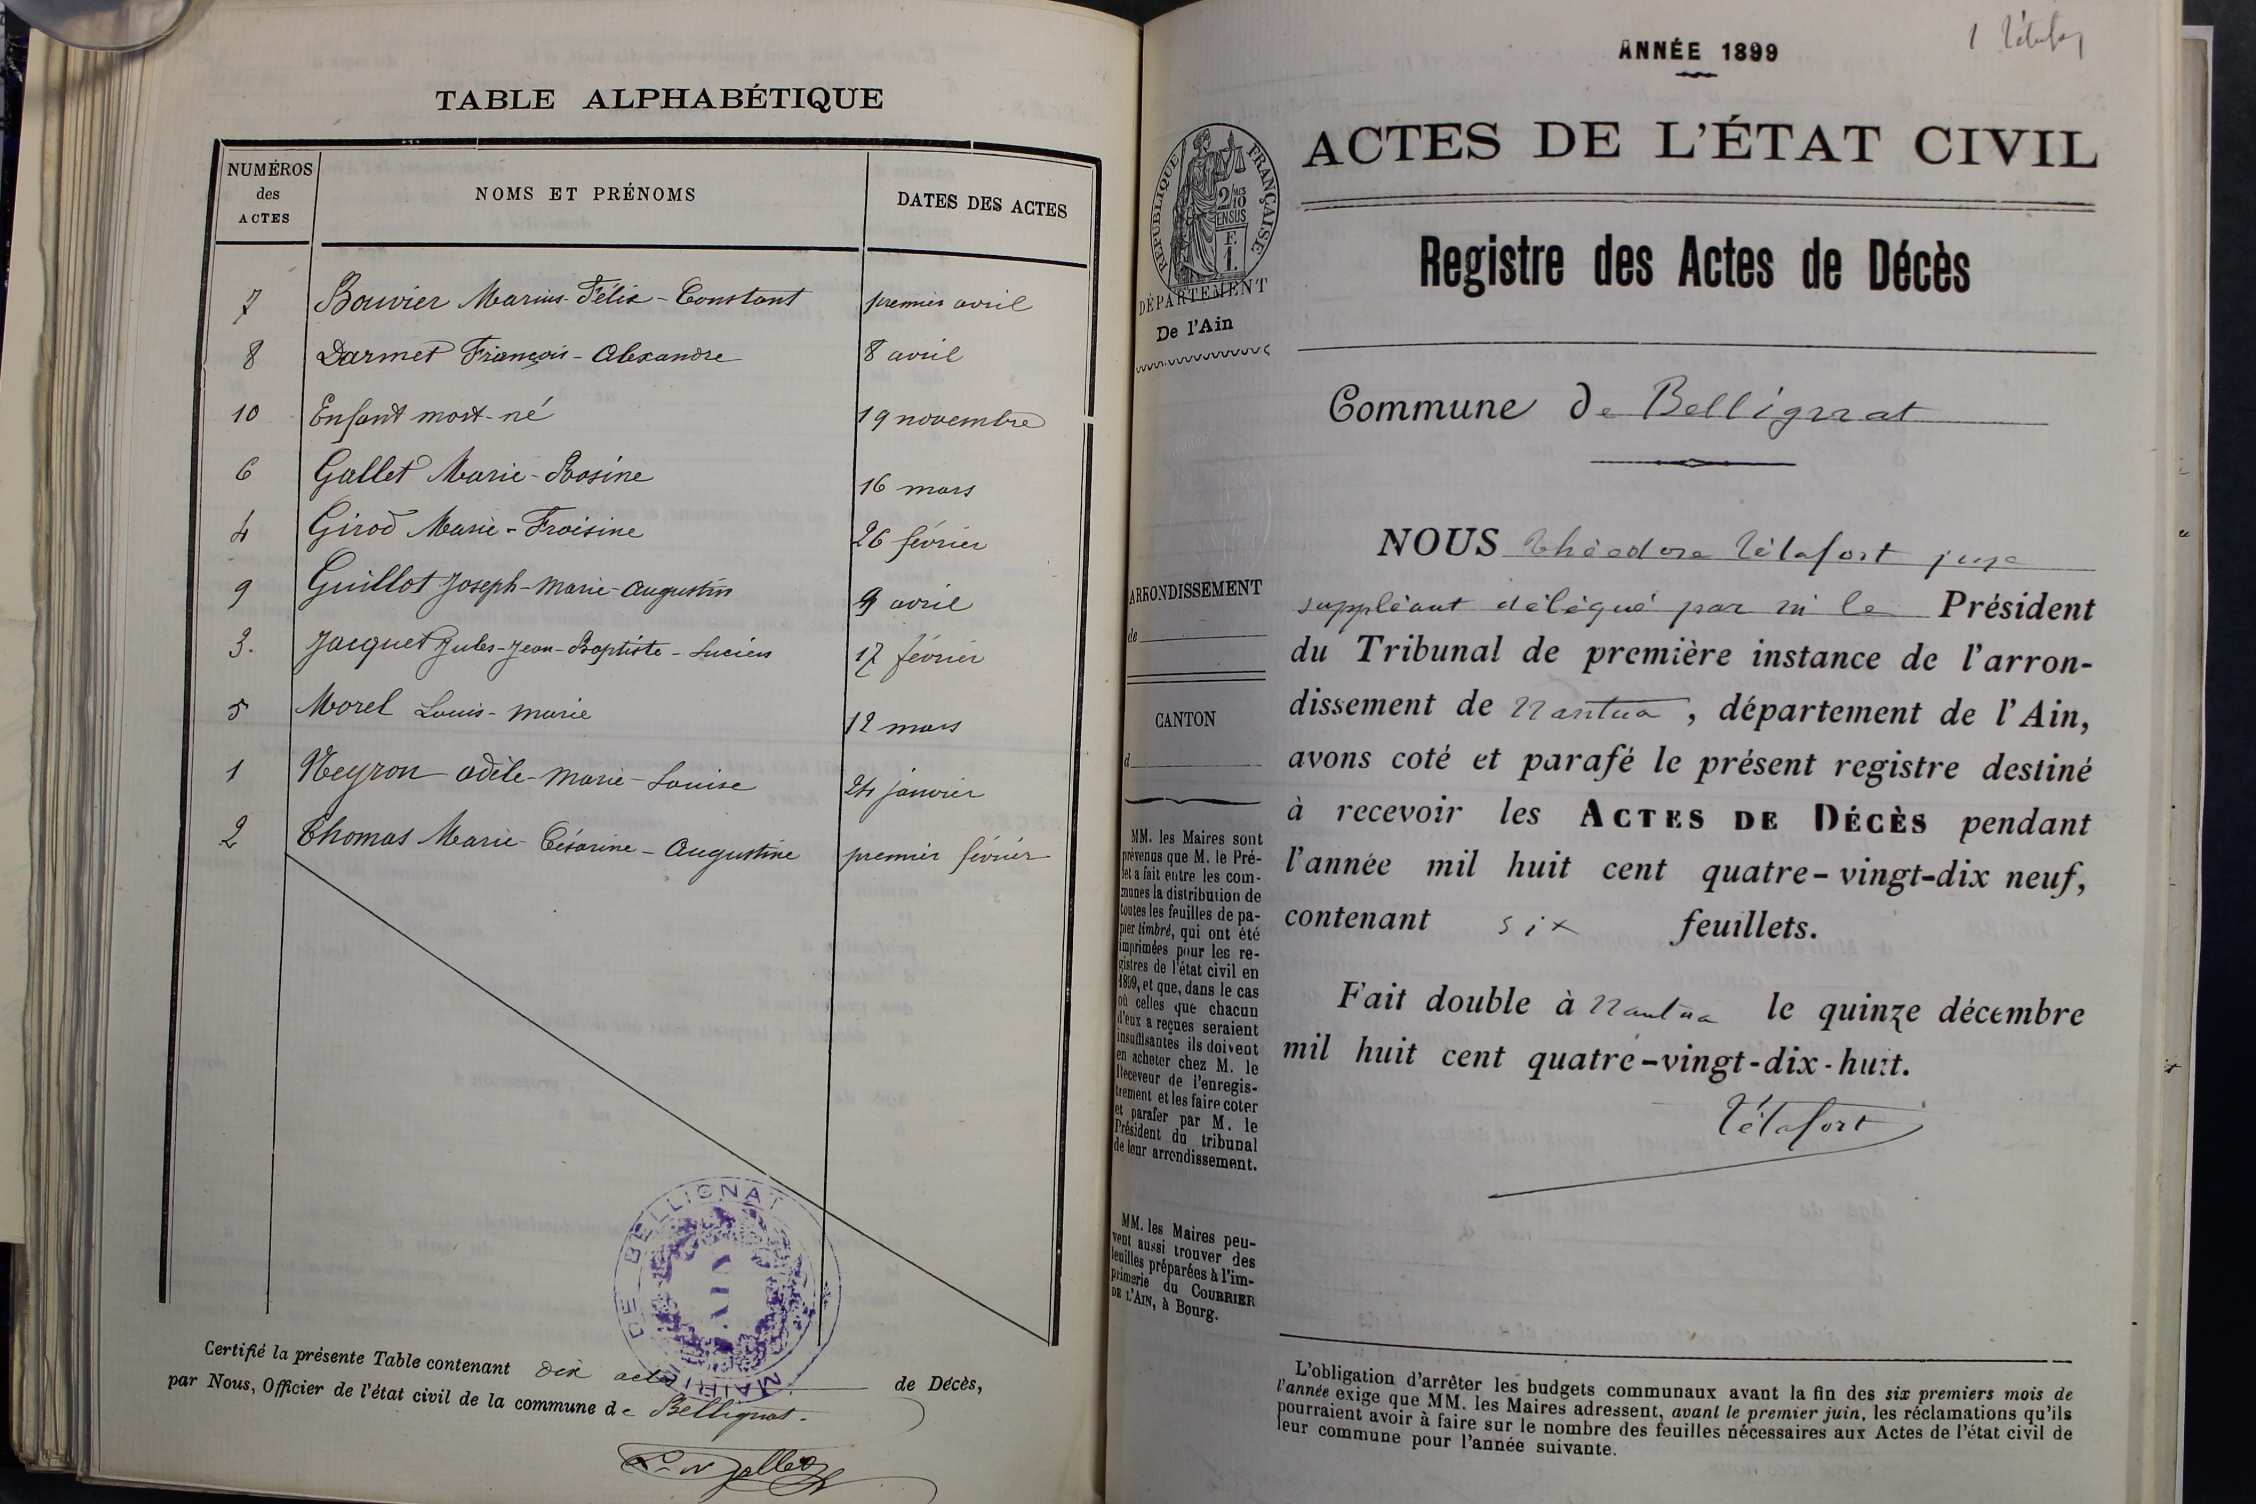 TABLE ALPHABÉTIQUE
NUMÉROS des ACTES
NOMS ET PRÉNOMS
DATES DES ACTES
7 Bouvier Marius-Félix-Constant premier avril
8 Darmet François-Alexandre 8 avril
10 Enfant mort-né 19 novembre
6 Gallet Marie-Rosine 16 mars
4 Girod Marie-Froisine 26 février
9 Guillot Joseph-Marie-Augustin 9 avril
3. Jacquet Jules-Jean-Baptiste-Lucien 17 février
5 Morel Louis-Marie 12 mars
1 Neyron Adèle-Marie-Louise 24 janvier
2 Thomas Marie-Césarine-Augustine premier février
MAIRIE DE BELLIGNAT
AIN
Certifié la présente Table contenant dix actes de Décès,
par Nous, Officier de l'état civil de la commune de Bellignat.
Gallet
1 Tétafort
ANNÉE 1899
ACTES DE L'ÉTAT CIVIL
RÉPUBLIQUE FRANÇAISE
2/10 MES
EN SUS
E.
1.
DÉPARTEMENT
De l'Ain
Registre des Actes de Décès
Commune de Bellignat
NOUS Théodore Tétafort juge
suppléant délégué par M le Président
du Tribunal de première instance de l'arron-
dissement de Nantua, département de l'Ain,
avons coté et parafé le présent registre destiné
à recevoir les ACTES DE DÉCÈS pendant
l'année mil huit cent quatre-vingt-dix neuf,
contenant six feuillets.
Fait double à Nantua le quinze décembre
mil huit cent quatre-vingt-dix-huit.
Tétafort
ARRONDISSEMENT
de
CANTON
d
MM. les Maires sont
prévenus que M. le Pré-
fet a fait entre les com-
munes la distribution de
toutes les feuilles de pa-
pier timbré, qui ont été
imprimées pour les re-
gistres de l'état civil en
1899, et que, dans le cas
où celles que chacun
d'eux a reçues seraient
insuffisantes ils doivent
en acheter chez M. le
Receveur de l'enregis-
trement et les faire coter
et parafer par M. le
Président du tribunal
de leur arrondissement.
MM. les Maires peu-
vent aussi trouver des
feuilles préparées à l'im-
primerie du COURRIER
DE L'AIN, à Bourg.
L'obligation d'arrêter les budgets communaux avant la fin des six premiers mois de
l'année exige que MM. les Maires adressent, avant le premier juin, les réclamations qu'ils
pourraient avoir à faire sur le nombre des feuilles nécessaires aux Actes de l'état civil de
leur commune pour l'année suivante.